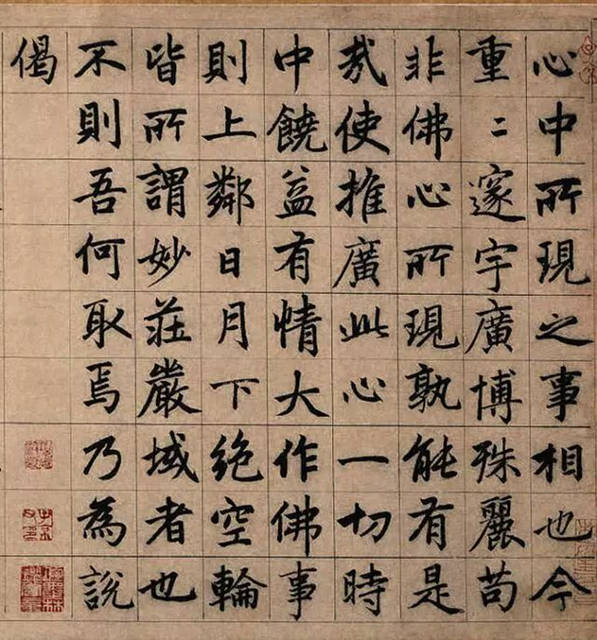 心中所現之事相也今
重〻邃宇廣博殊麗苟
非佛心所現孰能有是
哉使推廣此心一切時
中饒益有情大作佛事
則上鄰日月下絶空輪
皆所謂妙莊嚴域者也
不則吾何取焉乃為說
偈